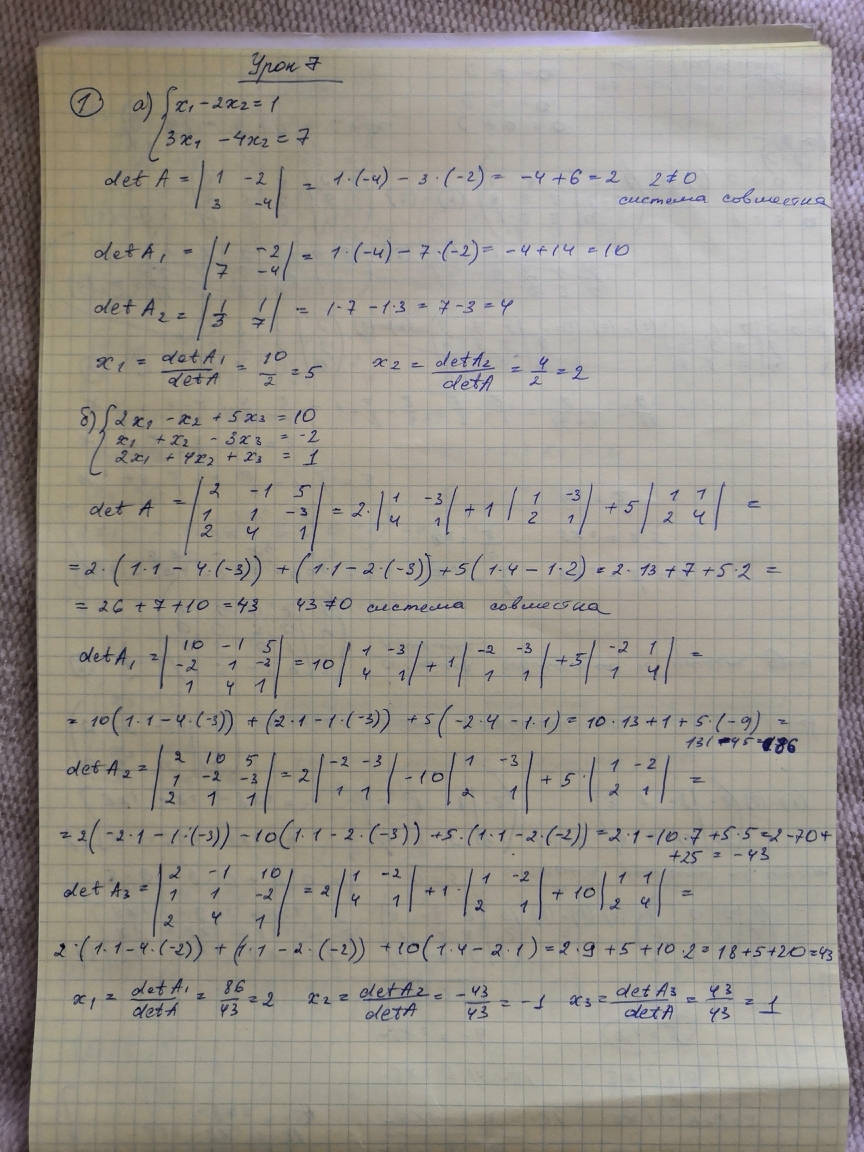 Урок 7
① а) {x₁ - 2x₂ = 1
3x₁ - 4x₂ = 7
det A = |1 -2; 3 -4| = 1·(-4) - 3·(-2) = -4+6 = 2 2≠0
система совместна
det A₁ = |1 -2; 7 -4| = 1·(-4) - 7·(-2) = -4+14 = 10
det A₂ = |1 1; 3 7| = 1·7 - 1·3 = 7-3 = 4
x₁ = detA₁/detA = 10/2 = 5 x₂ = detA₂/detA = 4/2 = 2
б) {2x₁ - x₂ + 5x₃ = 10
x₁ + x₂ - 3x₃ = -2
2x₁ + 4x₂ + x₃ = 1
det A = |2 -1 5; 1 1 -3; 2 4 1| = 2·|1 -3; 4 1| + 1|1 -3; 2 1| + 5|1 1; 2 4| =
= 2·(1·1 - 4·(-3)) + (1·1 - 2·(-3)) + 5(1·4 - 1·2) = 2·13 + 7 + 5·2 =
= 26 + 7 + 10 = 43 43≠0 система совместна
det A₁ = |10 -1 5; -2 1 -3; 1 4 1| = 10|1 -3; 4 1| + 1|-2 -3; 1 1| + 5|-2 1; 1 4| =
= 10(1·1 - 4·(-3)) + (-2·1 - 1·(-3)) + 5(-2·4 - 1·1) = 10·13 + 1 + 5·(-9) =
131 - 45 = 86
det A₂ = |2 10 5; 1 -2 -3; 2 1 1| = 2|-2 -3; 1 1| - 10|1 -3; 2 1| + 5·|1 -2; 2 1| =
= 2(-2·1 - 1·(-3)) - 10(1·1 - 2·(-3)) + 5·(1·1 - 2·(-2)) = 2·1 - 10·7 + 5·5 = 2 - 70 +
+25 = -43
det A₃ = |2 -1 10; 1 1 -2; 2 4 1| = 2|1 -2; 4 1| + 1·|1 -2; 2 1| + 10|1 1; 2 4| =
2·(1·1 - 4·(-2)) + (1·1 - 2·(-2)) + 10(1·4 - 2·1) = 2·9 + 5 + 10·2 = 18+5+20 = 43
x₁ = detA₁/detA = 86/43 = 2 x₂ = detA₂/detA = -43/43 = -1 x₃ = detA₃/detA = 43/43 = 1